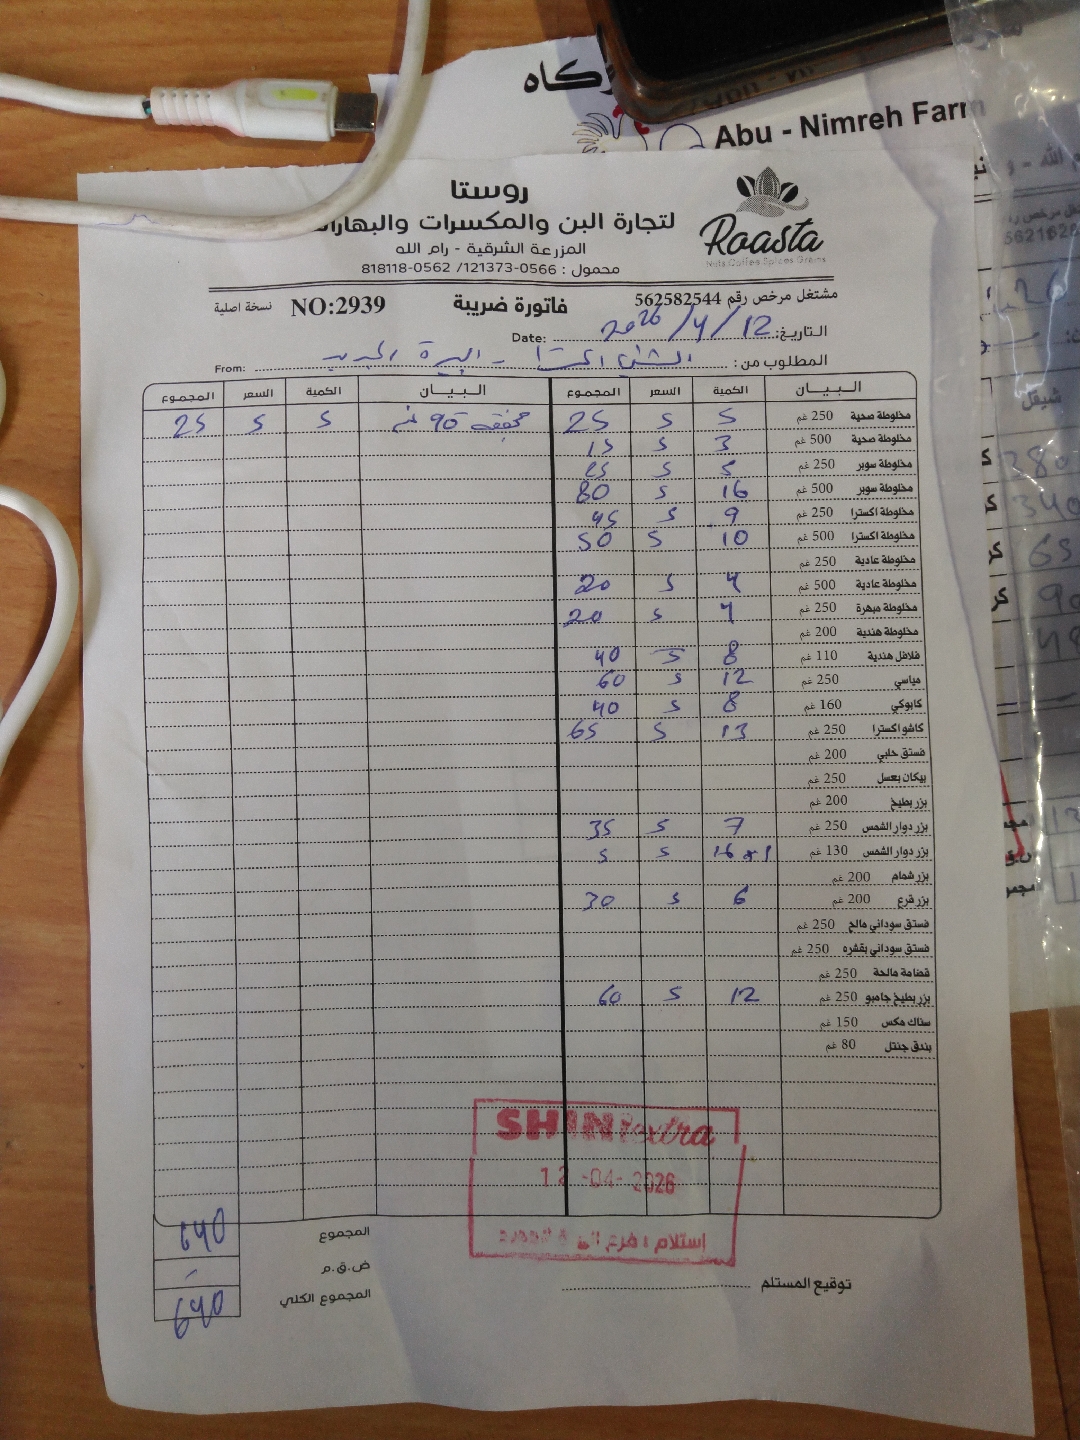 اكاه
Abu - Nimreh Farm
روستا
لتجارة البن والمكسرات والبهارات
المزرعة الشرقية - رام الله
محمول : 0566-121373/ 0562-818118
Roasta
Nuts.Coffee.Spices.Grains
مشتغل مرخص رقم 562582544
فاتورة ضريبة
NO:2939
نسخة اصلية
التاريخ: 12/4/2026 Date:
المطلوب من: البيرة الجديد From:
البيان الكمية السعر المجموع البيان الكمية السعر المجموع
مخلوطة صحية 250 غم 5 5 25 95 5 5 25
مخلوطة صحية 500 غم 3 5 15
مخلوطة سوبر 250 غم 5 5 25
مخلوطة سوبر 500 غم 16 5 80
مخلوطة اكسترا 250 غم 9 5 45
مخلوطة اكسترا 500 غم 10 5 50
مخلوطة عادية 250 غم
مخلوطة عادية 500 غم 4 5 20
مخلوطة مبهرة 250 غم 4 5 20
مخلوطة هندية 200 غم
فلافل هندية 110 غم 8 5 40
مياسي 250 غم 12 5 60
كابوكي 160 غم 8 5 40
كاشو اكسترا 250 غم 13 5 65
فستق حلبي 200 غم
بيكان بعسل 250 غم
بزر بطيخ 200 غم
بزر دوار الشمس 250 غم 7 5 35
بزر دوار الشمس 130 غم 16*1 5 5
بزر شمام 200 غم
بزر قرع 200 غم 6 5 30
فستق سوداني مالح 250 غم
فستق سوداني بقشره 250 غم
قضامة مالحة 250 غم
بزر بطيخ جامبو 250 غم 12 5 60
سناك مكس 150 غم
بندق جنتل 80 غم
SHINI extra
12-04-2026
إستلام : فرع
المجموع 640
ض.ق.م -
المجموع الكلي 640
توقيع المستلم
شيقل
280
340
65
90
48